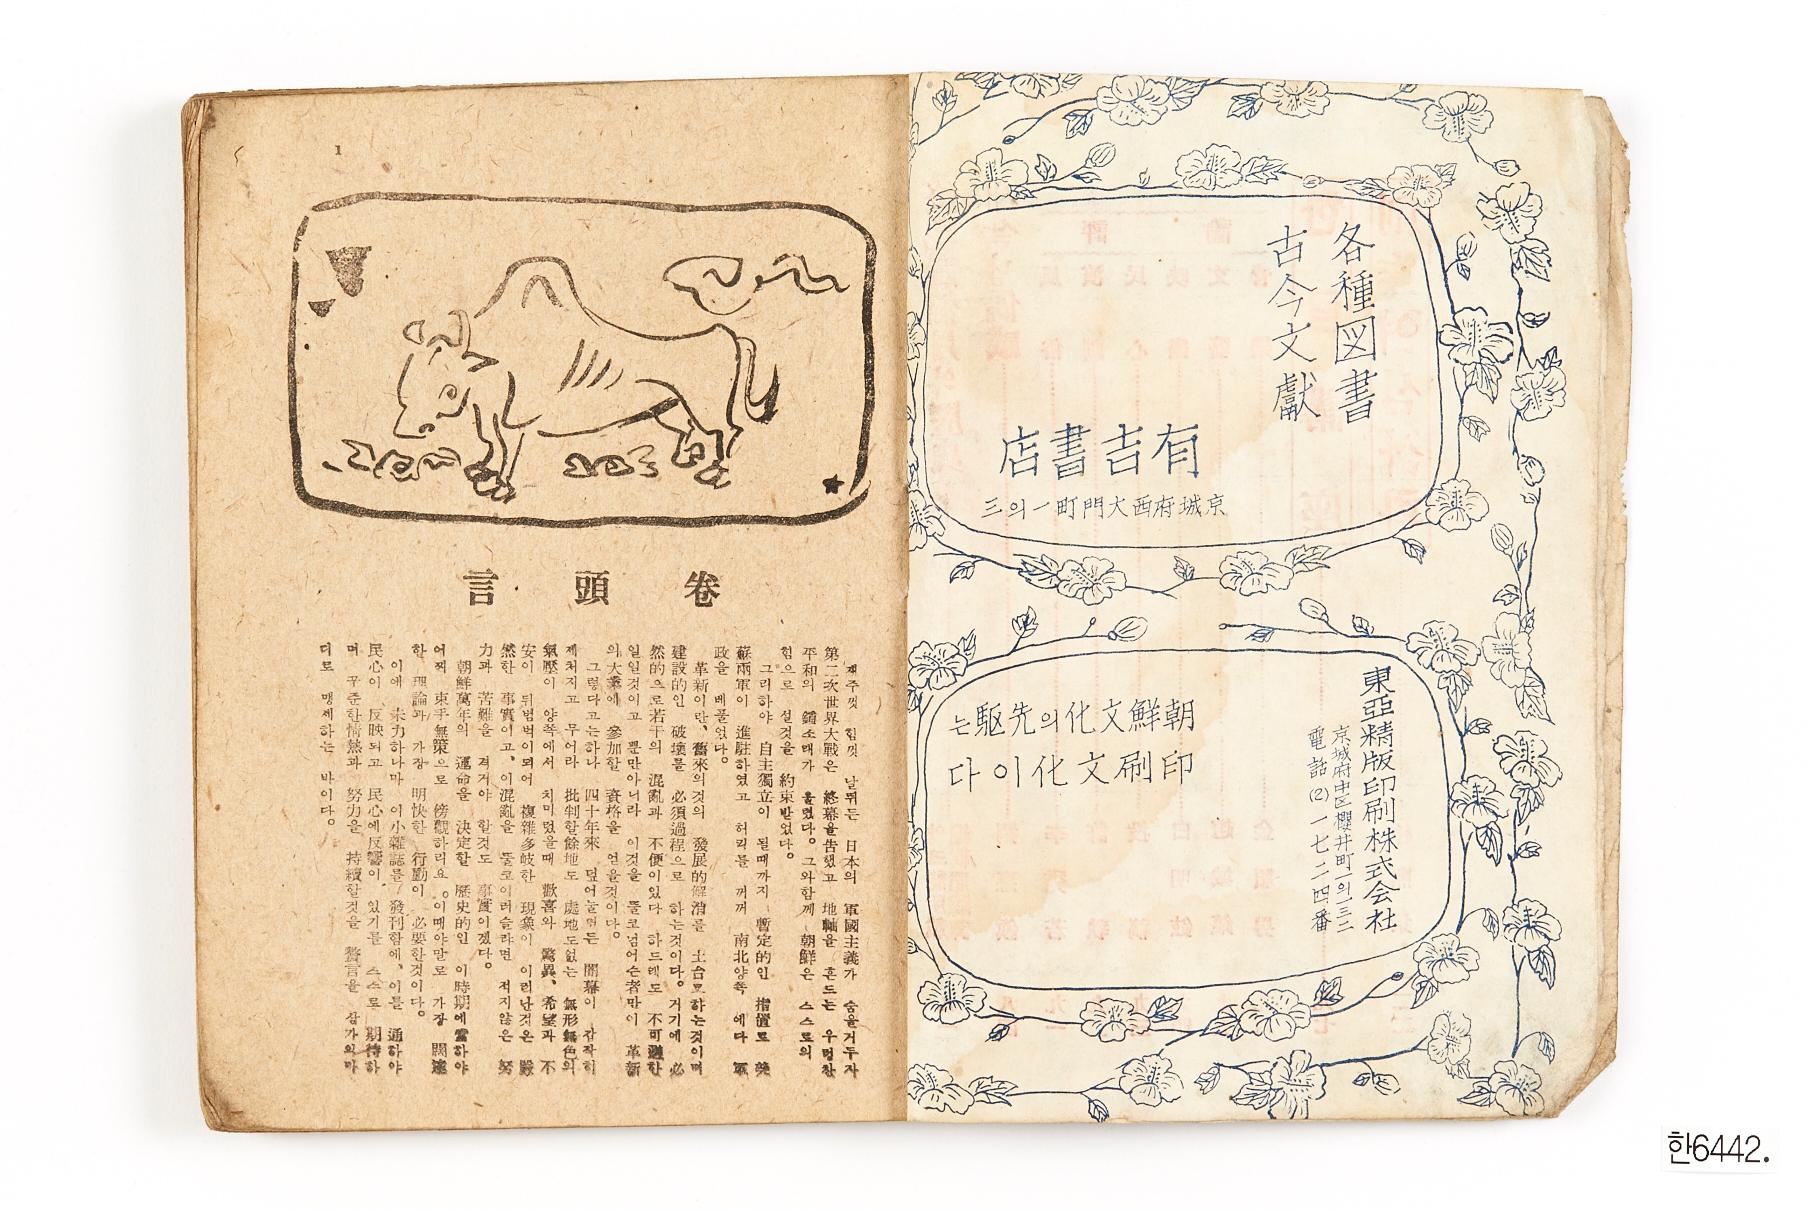 各種図書
古今文獻
有吉書店
京城府西大門町一의三
東亞精版印刷株式会社
京城府中区櫻井町一의一三二
電話(2)一七二四番
朝鮮文化의先駆는
印刷文化이다
1
卷頭言
재주껏 힘껏 날뛰든 日本의 軍國主義가 숨을거두자
第二次世界大戰은 終幕을告했고 地軸을 흔드는 우렁찬
平和의 鐘소래가 울렸다。그와함께 朝鮮은 스스로의
힘으로 설것을 約束받었다。
그리하야 自主獨立이 될때까지 暫定的인 措置로 美
蘇兩軍이 進駐하였고 허리를 꺼꺼 南北양쪽 에다 軍
政을 베풀었다。
革新이란、舊來의것의 發展的解消를 土台로하는것이며
建設的인 破壞를 必須過程으로 하는것이다。거기에 必
然的으로若干의 混亂과 不便이있다 하드래도 不可避한
일일것이고 뿐만아니라 이것을 뚤코넘어슨者만이 革新
의大業에 參加할 資格을 얻을것이다。
그렇다고는하나 四十年來 덮어눌렀든 闇幕이 갑작히
제처지고 무어라 批判할餘地도 處地도없는 無形無色의
氣壓이 양쪽에서 치미렀을때 歡喜와 驚異、希望과 不
安이 뒤범벅이되어 複雜多岐한 現象이 이러난것은 嚴
然한 事實이고、이混亂을 뚤코이러슬랴면 적지않은 努
力과 苦難을 격거야 할것도 事實이겠다。
朝鮮萬年의 運命을 決定할 歷史的인 이時期에當하야
어찌 束手無策으로 傍觀하리요。이때야말로 가장 闊達
한 理論과 가장 明快한 行動이 必要한것이다。
이에 未力하나마 이小雜誌를 發刊함에、이를 通하야
民心이 反映되고 民心에反響이 있기를 스스로 期待하
며 꾸준한情熱과 努力을 持續할것을 誓言을 삼가의마
디로 맹세하는 바이다。
한6442.